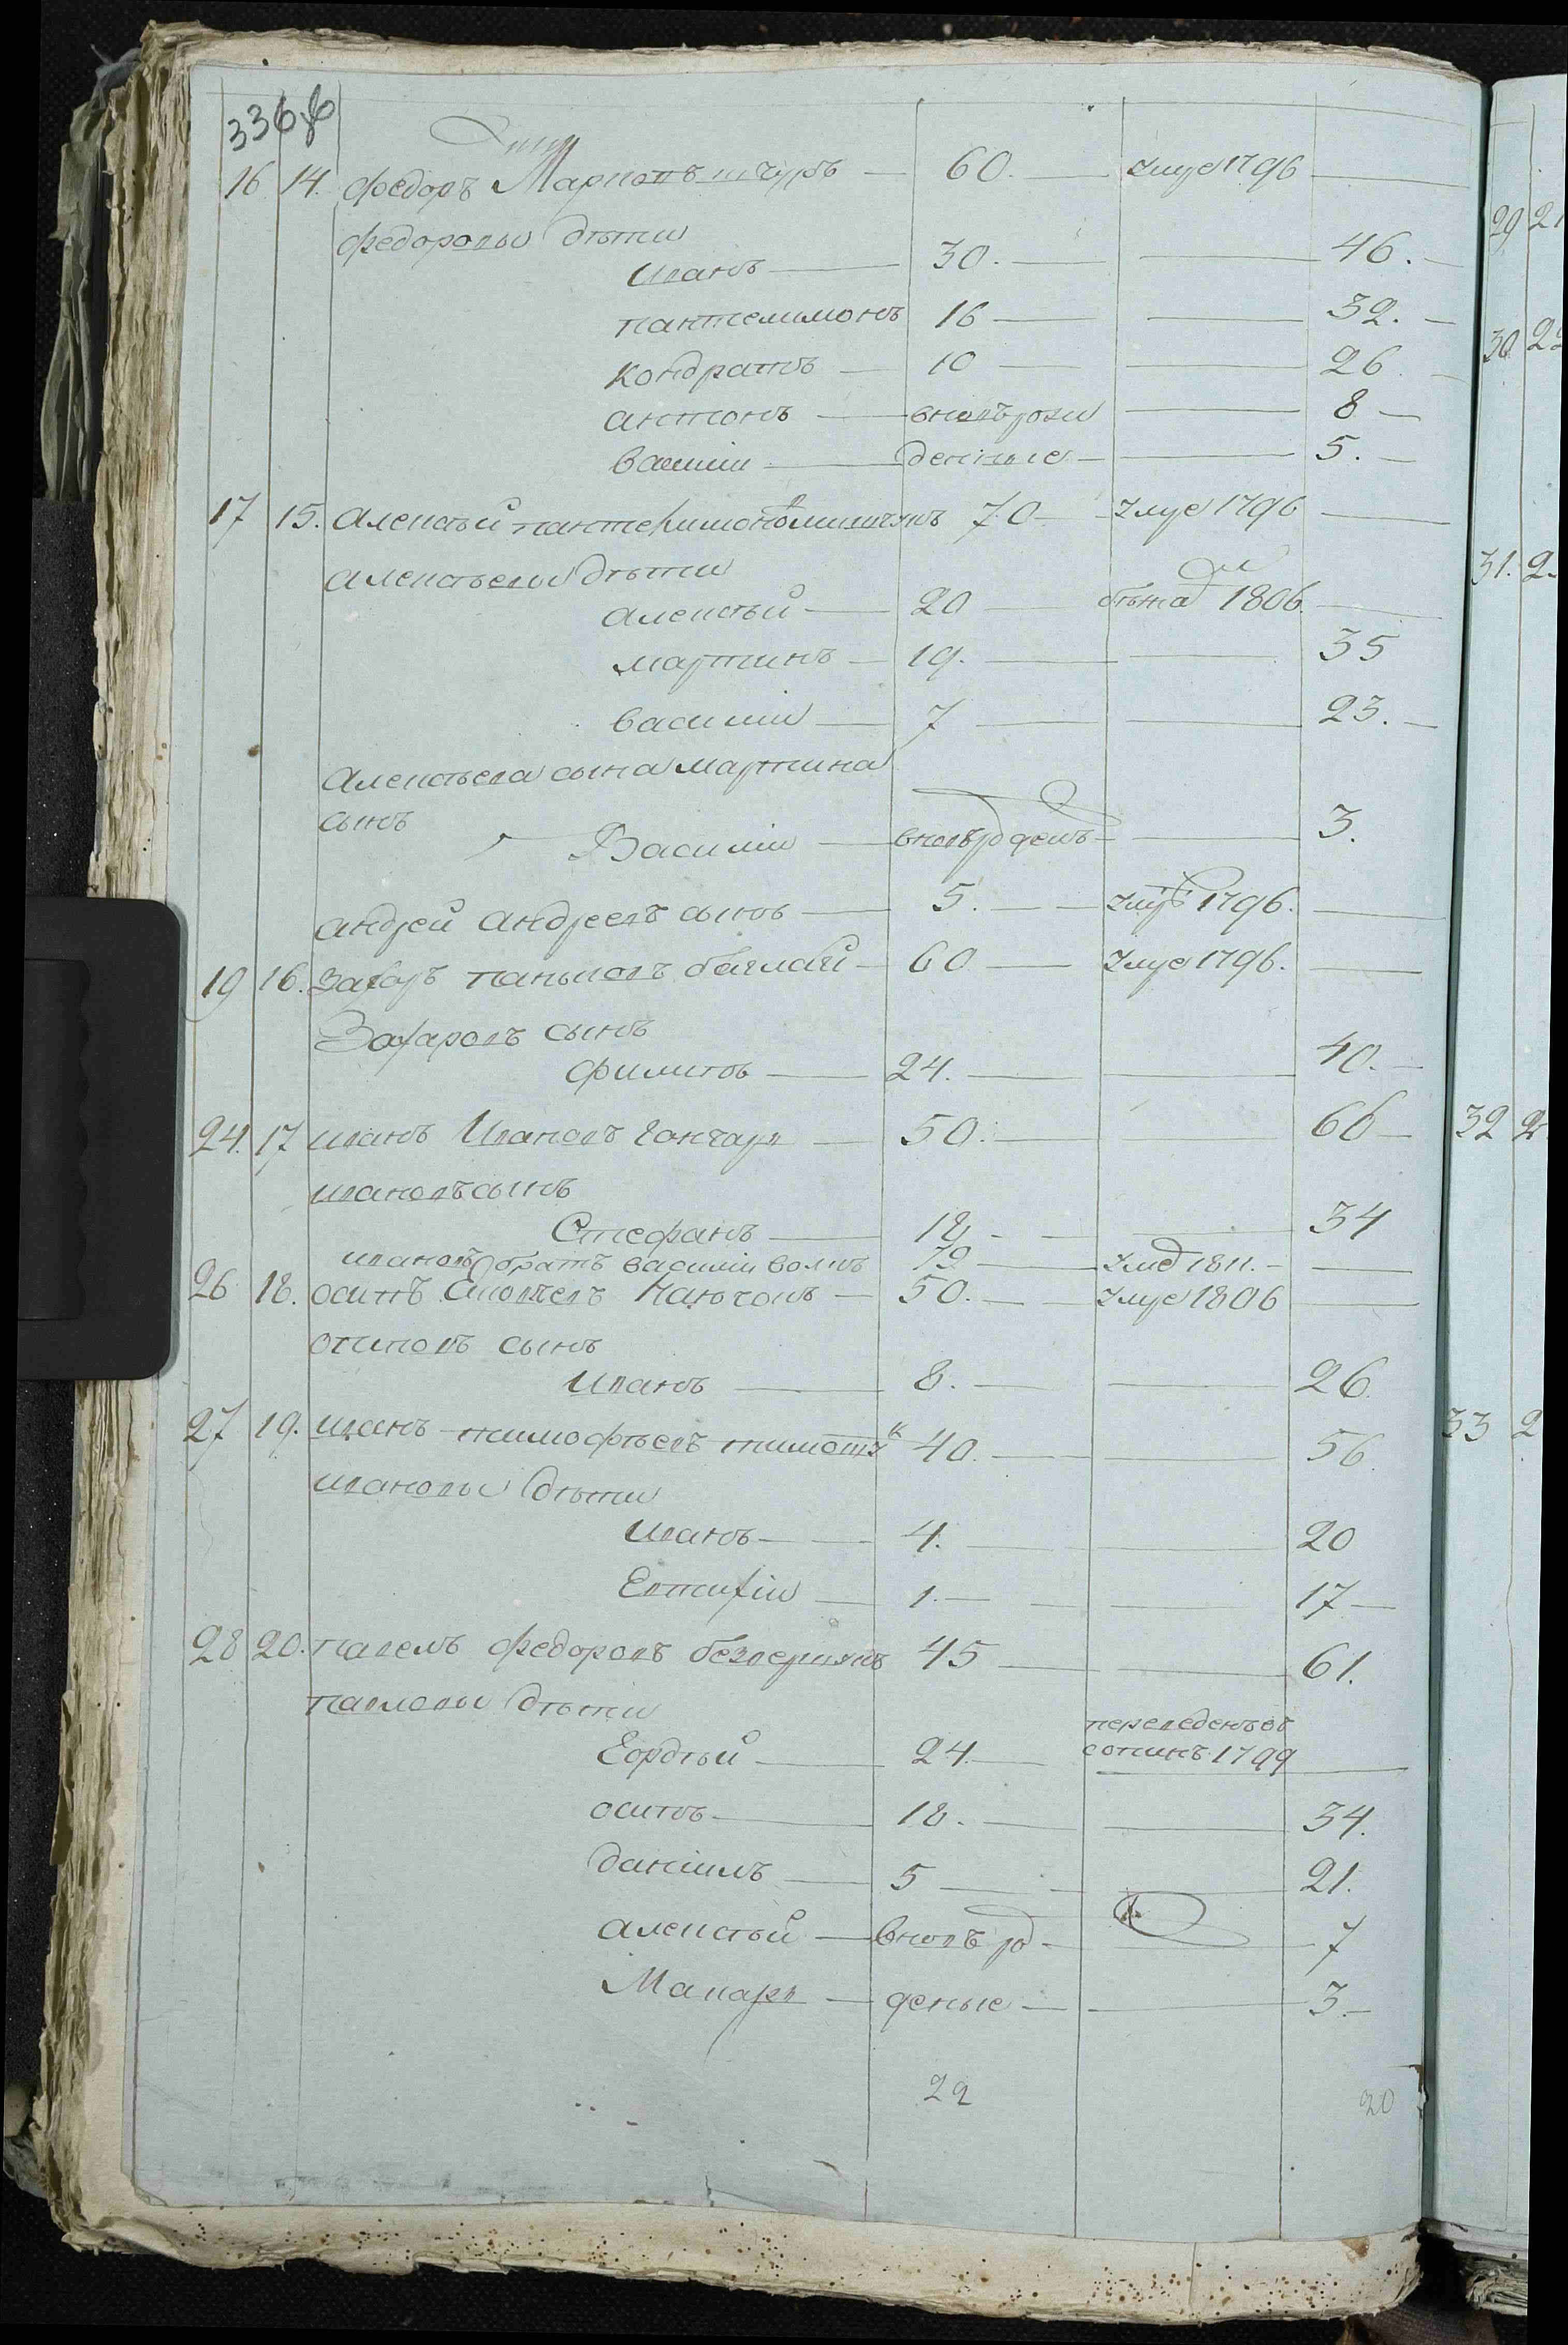 336 об
16 14. федоръ Марковъ — 60. — 1796 —
федоровы дѣти
иванъ — 30. — — 46. —
пантелимонъ 16 — — 32. —
кондратъ — 10 — — 26
антонъ — вновьрожи — 8 —
василіи — денные — — 5. —
17 15. алексѣй пантелимоновъ 70 — 1796 —
алексѣевы дѣти
алексѣй — 20 — бѣжа 1806. —
мартинъ — 19. — — 35
василіи — 7 — — 23. —
алексѣева сына мартина
сынъ
Василіи — вновьрожденъ — — 3.
андрей андреевъ сынъ — 5. — 1796. —
19 16. захаръ баглай — 60 — 1796. —
Захаровъ сынъ
филипъ — 24. — — 40. —
24. 17 иванъ Ивановъ гончаръ — 50. — 66 —
ивановъ сынъ
Стефанъ — 18 — — 34
ивановъ братъ василіи волкъ 79 — 1811. — —
26 18. осипъ — 50. — 1806 —
осиповъ сынъ
иванъ — 8. — — 26
27 19. иванъ тимофѣевъ 40. — — 56
ивановы дѣти
иванъ — 4. — 20
Евтихіи — 1. — — 17 —
28 20. павелъ федоровъ 45 — — 61.
павловы дѣти
Гордѣй — 24. — переведенъ въ
1799 —
осипъ — 18. — — 34.
даніилъ — 5 — — 21.
алексѣй — вновь ро — — 7
Макаръ — жденые — — 3. —
22 20
29 21
30 22
31. 2
32 2
33 2